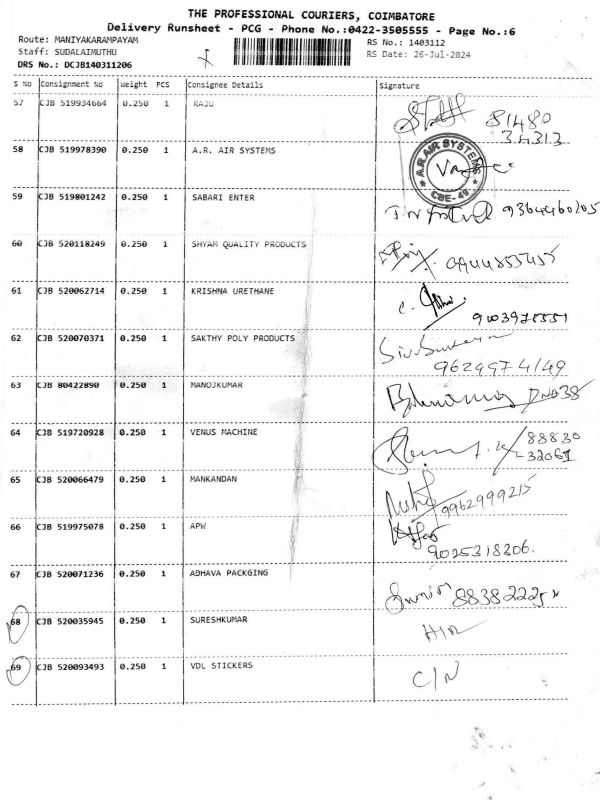 THE PROFESSIONAL COURIERS, COIMBATORE
Delivery Runsheet - PCG - Phone No.:0422-3505555 - Page No.:6
Route: MANIYAKARAMPAYAM
RS No.: 1403112
Staff: SUDALAIMUTHU
RS Date: 26-Jul-2024
DRS No.: DCJB140311206
S No Consignment No Weight PCS Consignee Details Signature
57 CJB 519934664 0.250 1 RAJU 81480
34313
58 CJB 519978390 0.250 1 A.R. AIR SYSTEMS
A.R. AIR SYSTEMS CBE-49
59 CJB 519801242 0.250 1 SABARI ENTER 9364460205
60 CJB 520118249 0.250 1 SHYAM QUALITY PRODUCTS 9944855455
61 CJB 520062714 0.250 1 KRISHNA URETHANE
62 CJB 520070371 0.250 1 SAKTHY POLY PRODUCTS
9629974149
63 CJB 80422890 0.250 1 MANOJKUMAR
64 CJB 519720928 0.250 1 VENUS MACHINE 88830
32061
65 CJB 520066479 0.250 1 MANKANDAN
9962999215
66 CJB 519975078 0.250 1 APW
9025318206.
67 CJB 520071236 0.250 1 ADHAVA PACKGING
68 CJB 520035945 0.250 1 SURESHKUMAR
69 CJB 520093493 0.250 1 VDL STICKERS
C/N